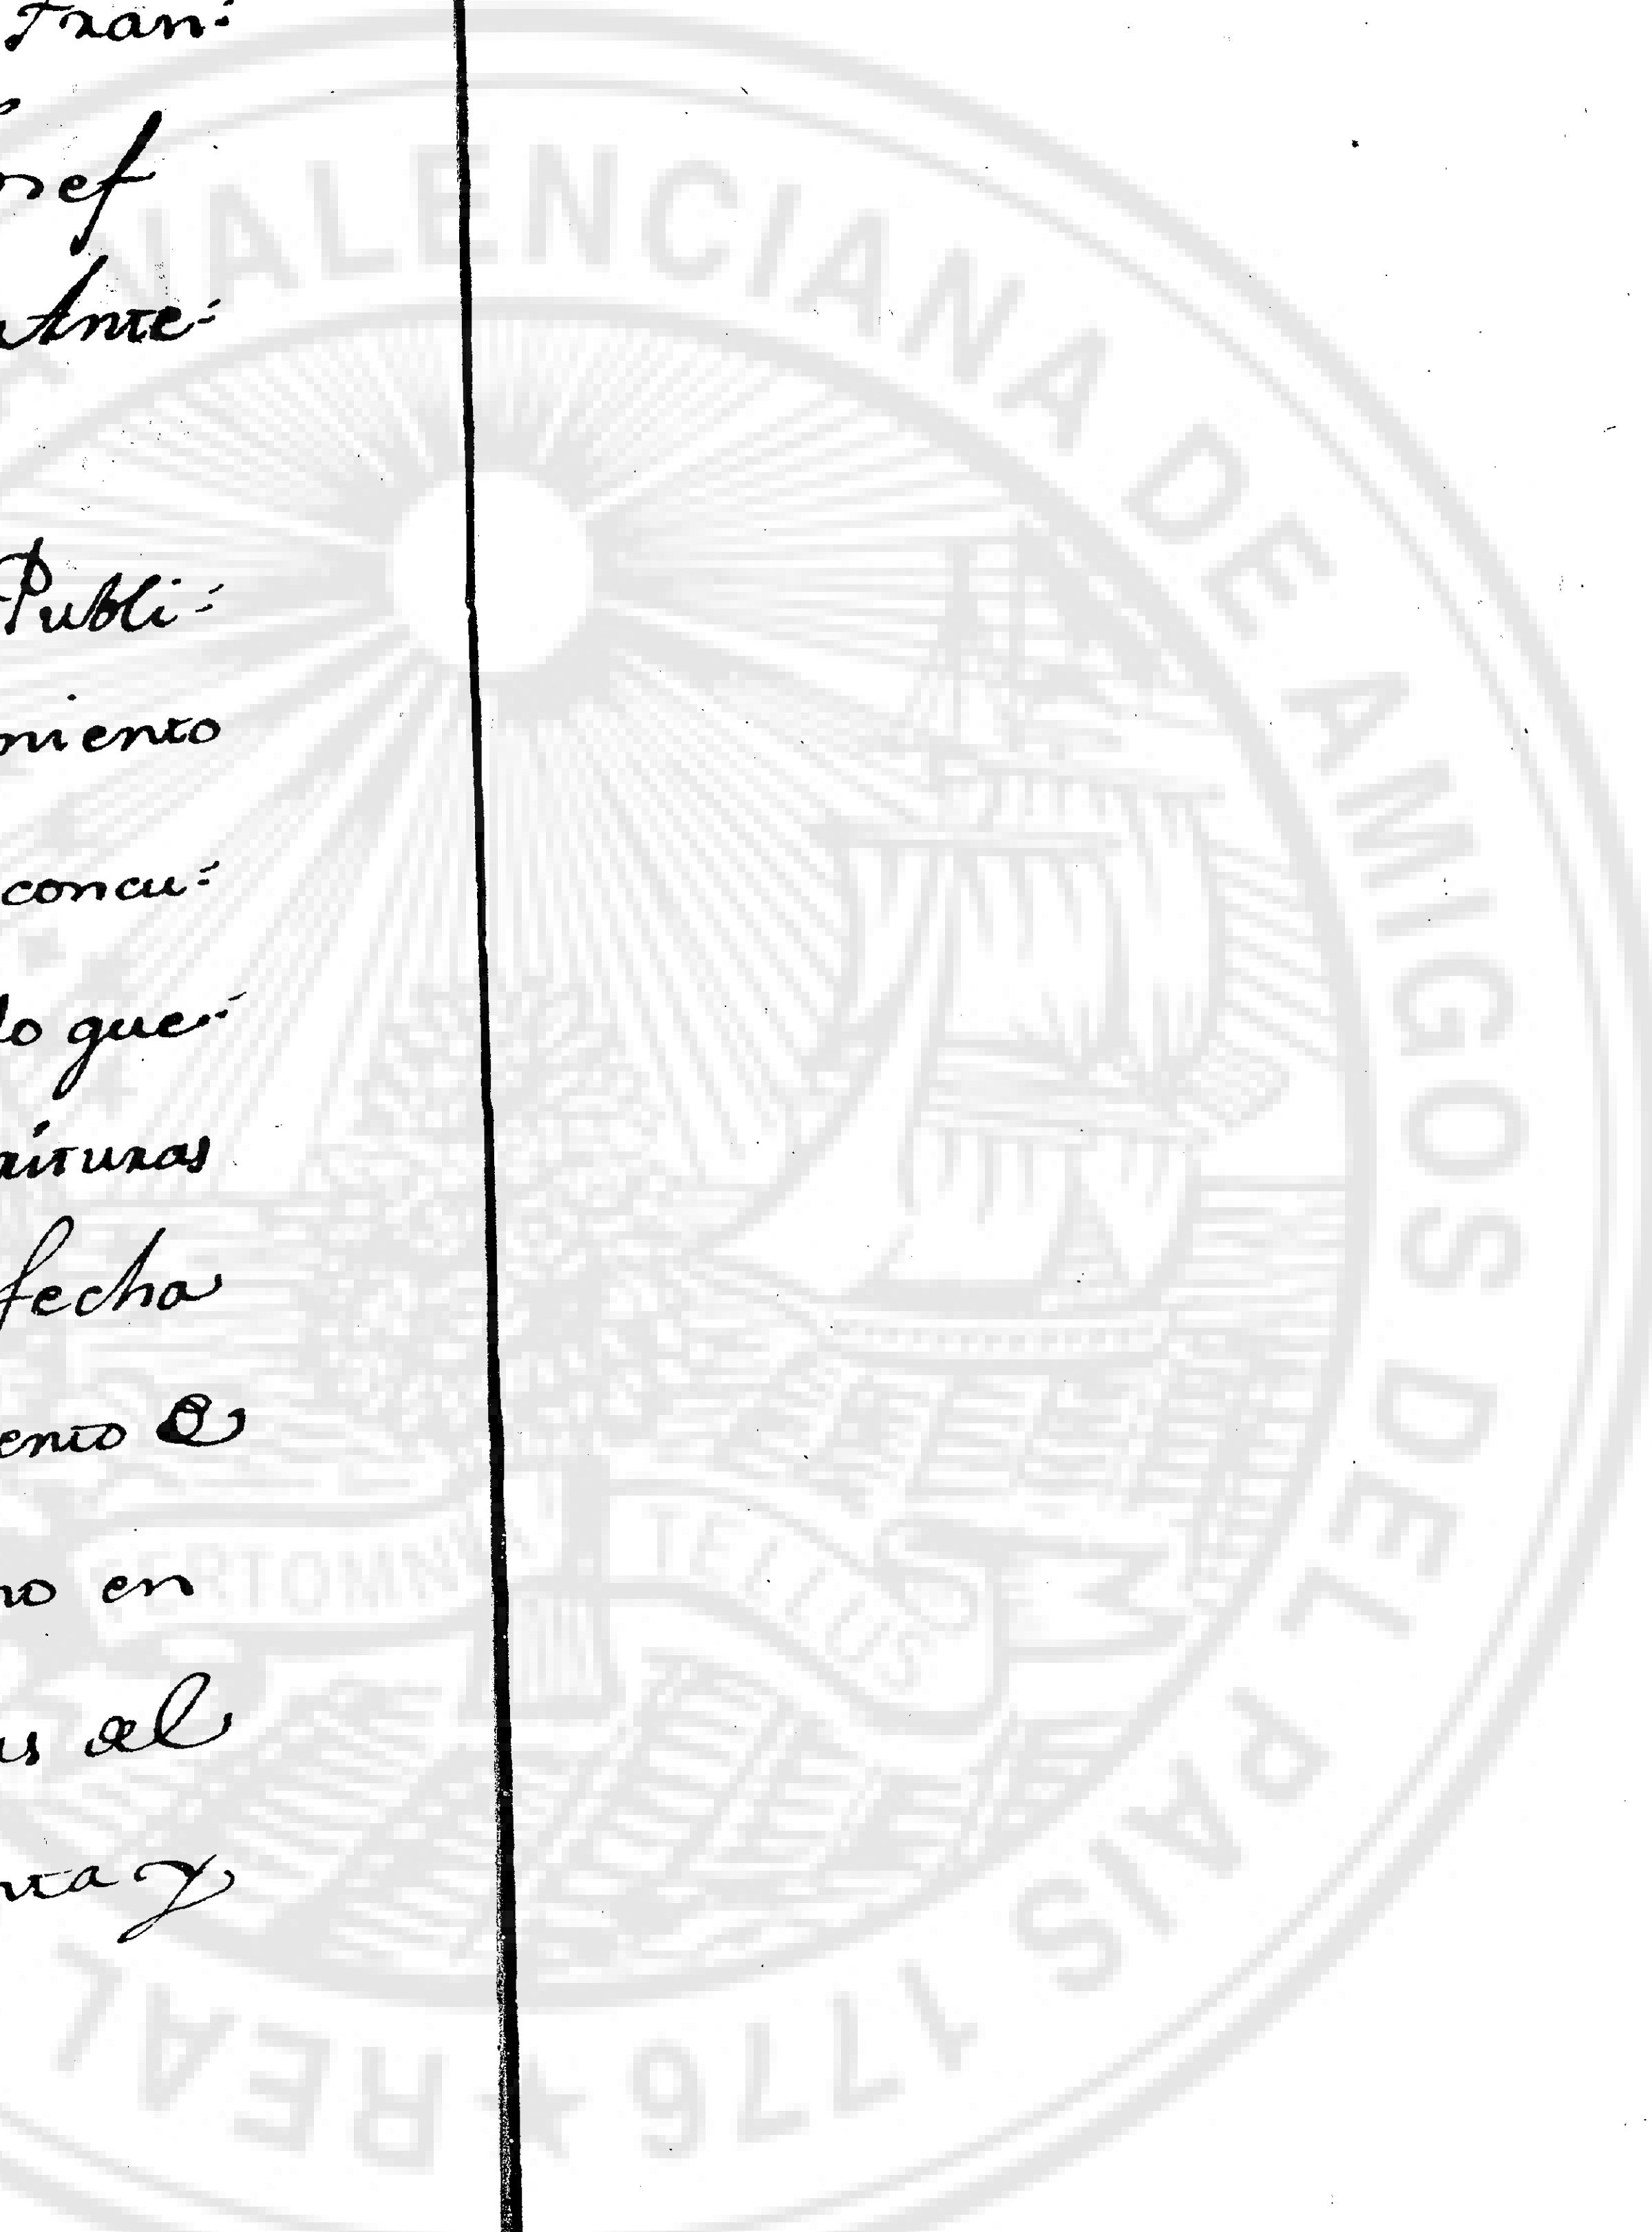 Fran:
osef
Ante:
Publi:
miento
concu:
lo que:
rituras
fecha
ento
no en
as al
nta y
VALENCIANA DE AMIGOS DEL PAIS 1776 ★ REAL
TELLUS